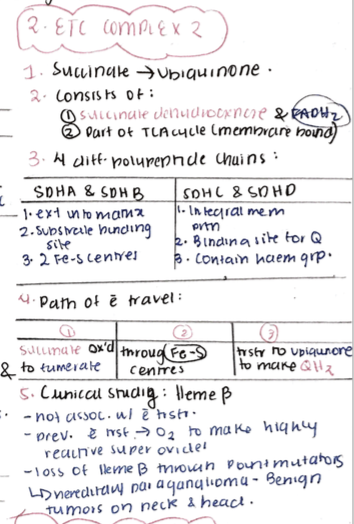 2. ETC COMPLEX 2
1. Succinate → Ubiquinone.
2. Consists of:
① succinate dehydrogenase & FADH2
② Part of TCA cycle (membrane bound)
3. 4 diff. polypeptide chains:
SDHA & SDHB
SDHC & SDHD
1. ext into matrix
2. Substrate binding
site
3. 2 Fe-S centres
1. Integral mem
prtn
2. Binding site for Q
3. Contain haem grp.
4. Path of ē travel:
①
②
③
succinate ox'd
& to fumerate
through Fe-S
centres
trsfr to ubiquinone
to make QH2
5. Clinical study: Heme β
- not assoc. w/ ē trsfr.
- prev. ē trsf. → O2 to make highly
reactive super oxides
- loss of Heme β through point mutators
↳ hereditary paraganglioma - Benign
tumors on neck & head.